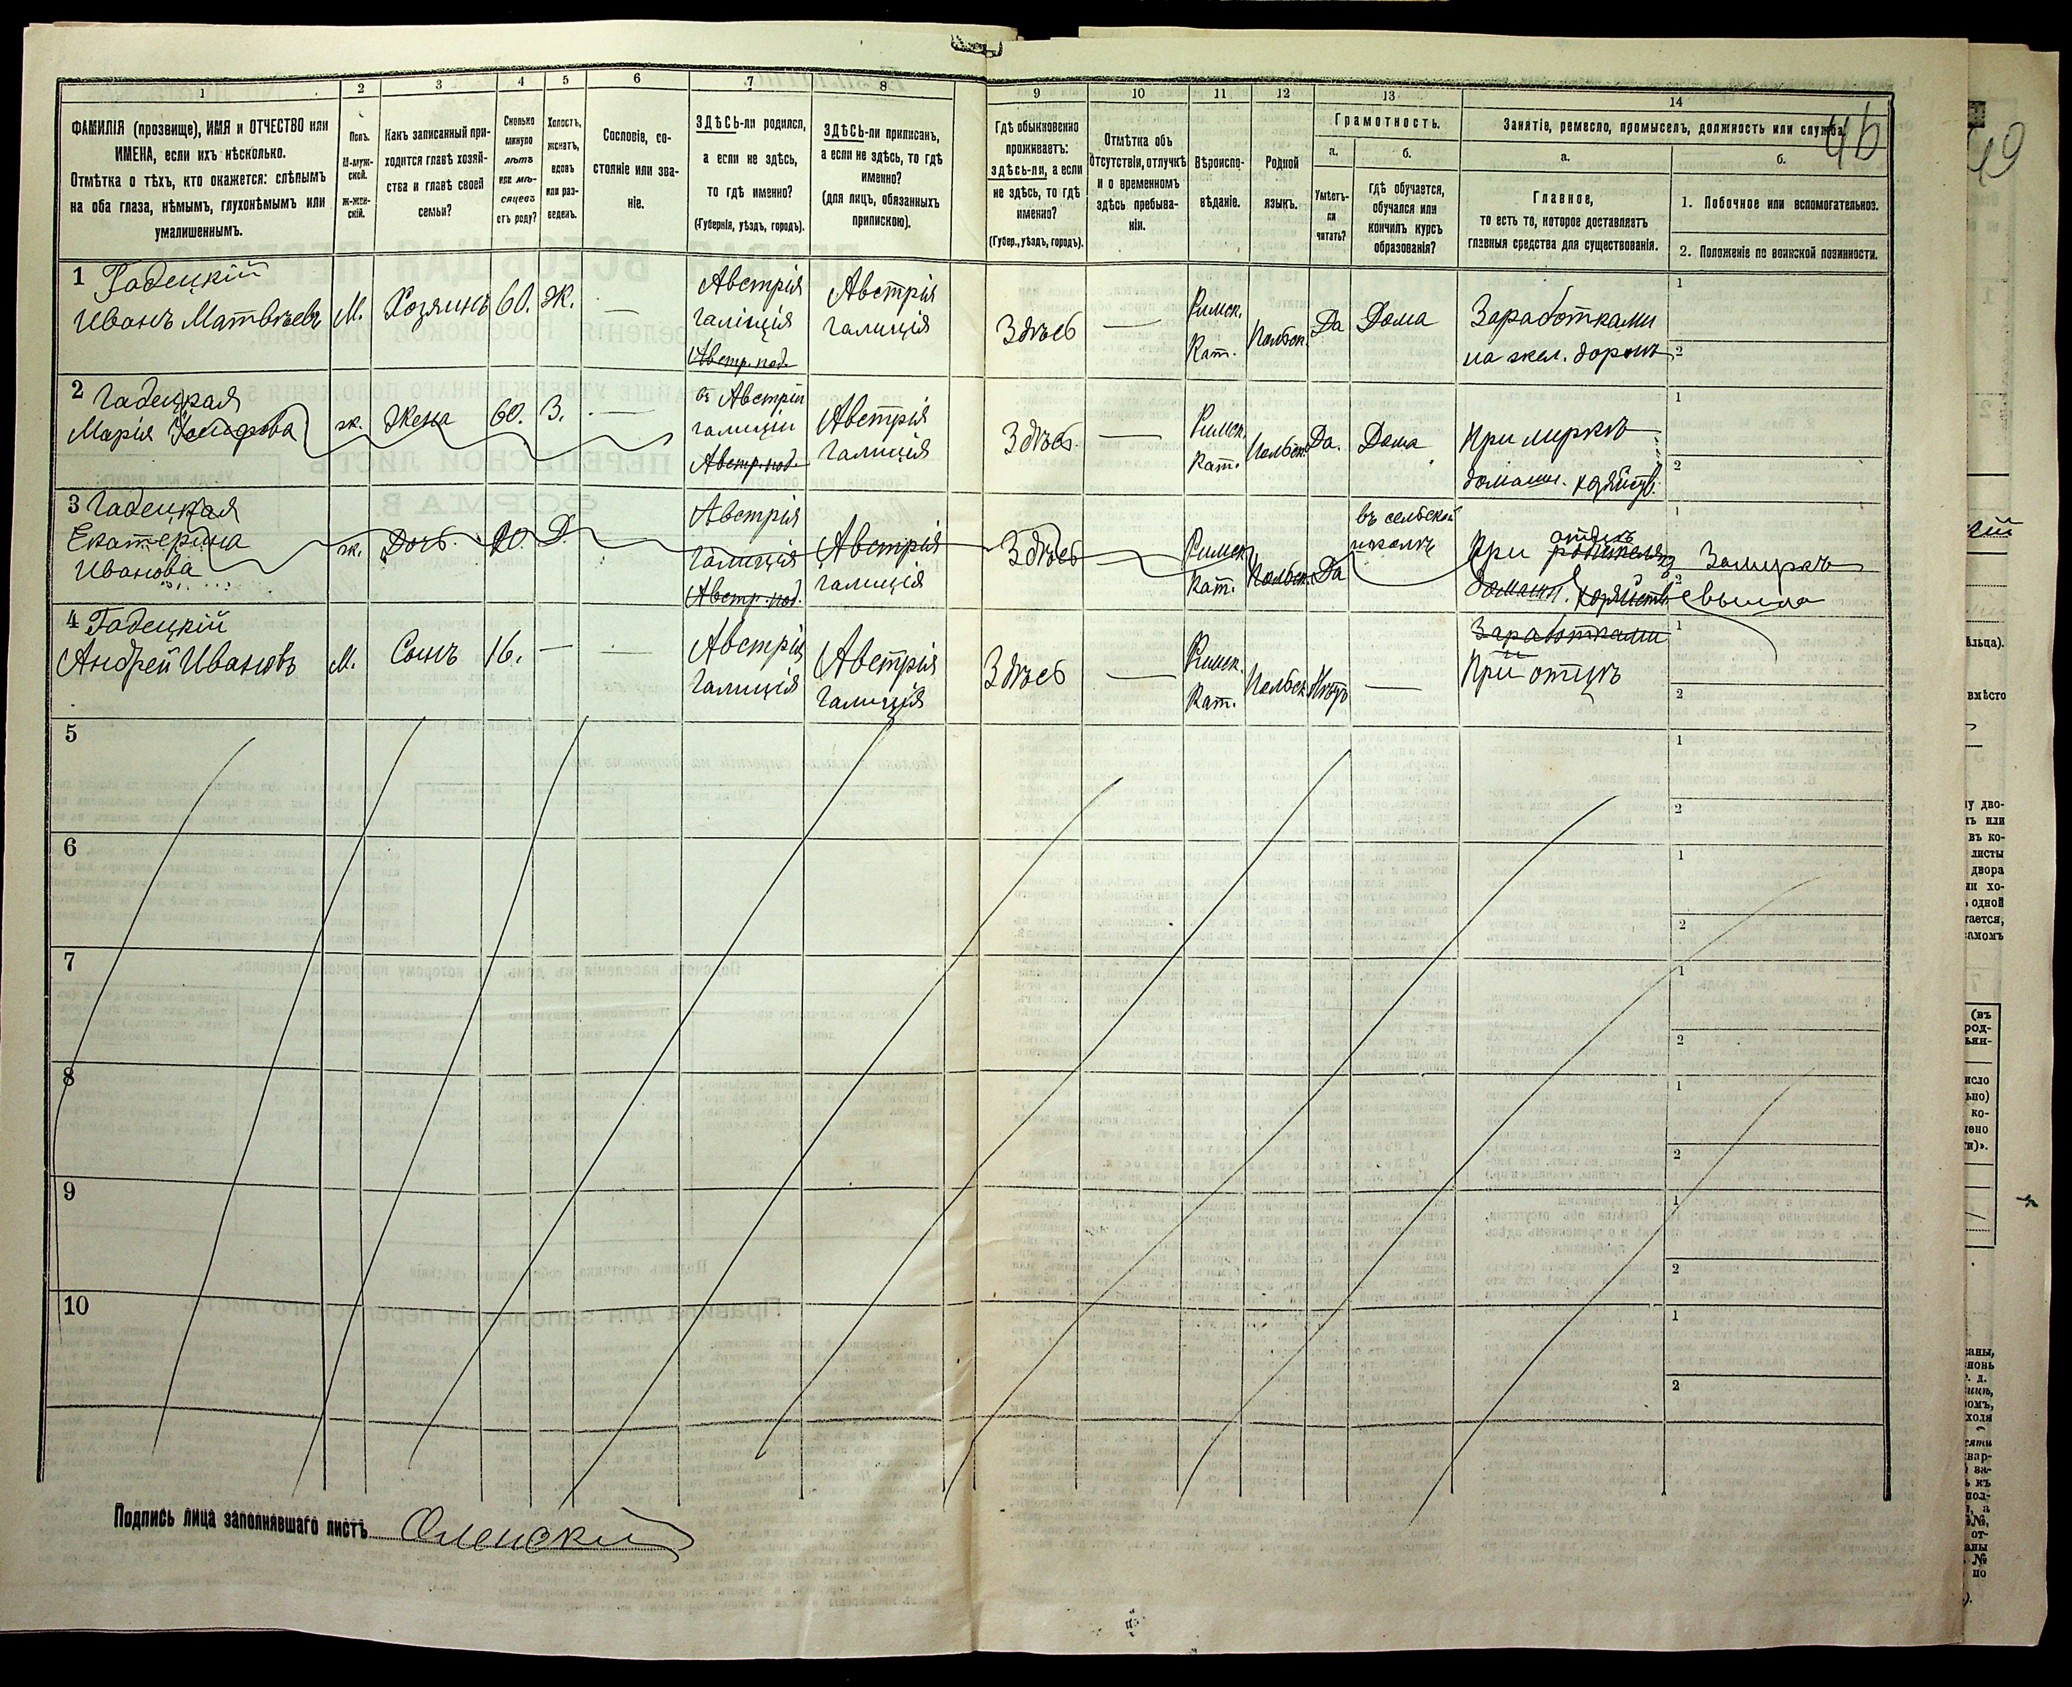 46
49
1 2 3 4 5 6 7 8 9 10 11 12 13 14
ФАМИЛІЯ (прозвище), ИМЯ и ОТЧЕСТВО или
ИМЕНА, если ихъ нѣсколько.
Отмѣтка о тѣхъ, кто окажется: слѣпымъ
на оба глаза, нѣмымъ, глухонѣмымъ или
умалишеннымъ.
Полъ.
М-муж-
ской.
ж-жен-
скій.
Какъ записанный при-
ходится главѣ хозяй-
ства и главѣ своей
семьи?
Сколько
минуло
лѣтъ
или мѣ-
сяцевъ
отъ роду?
Холостъ,
женатъ,
вдовъ
или раз-
веденъ.
Сословіе, со-
стояніе или зва-
ніе.
ЗДѢСЬ-ли родился,
а если не здѣсь,
то гдѣ именно?
(Губернія, уѣздъ, городъ).
ЗДѢСЬ-ли приписанъ,
а если не здѣсь, то гдѣ
именно?
(для лицъ, обязанныхъ
припискою).
Гдѣ обыкновенно
проживаетъ:
здѣсь-ли, а если
не здѣсь, то гдѣ
именно?
(Губер., уѣздъ, городъ).
Отмѣтка объ
отсутствіи, отлучкѣ
и о временномъ
здѣсь пребыва-
ніи.
Вѣроиспо-
вѣданіе.
Родной
языкъ.
Грамотность.
а.
Умѣетъ-
ли
читать?
б.
гдѣ обучается,
обучался или
кончилъ курсъ
образованія?
Занятіе, ремесло, промыселъ, должность или служба.
а.
Главное,
то есть то, которое доставляетъ
главныя средства для существованія.
б.
1. Побочное или вспомогательное.
2. Положеніе по воинской повинности.
1 Гадецкій
Иванъ Матвѣевъ
М.
Хозяинъ
60.
Ж.
Австрія
Галиція
Австр. под.
Австрія
Галиція
Здѣсь
Римск.
Кат.
Польск.
Да
Дома
Заработками
на жел. дорогѣ
1
2
2 Гадецкая
Марія
ж.
Жена
60.
З.
въ Австріи
Галиціи
Австр. под.
Австрія
Галиція
Здѣсь
Римск.
Кат.
Польск.
Да.
Дома
При
домашн. хозяйств.
1
2
3 Гадецкая
Екатерина
Иванова
ж.
Дочь.
20.
Д.
Австрія
Галиція
Австр. под.
Австрія
Галиція
Здѣсь
Римск.
Кат.
Польск.
Да
въ сельской
школѣ
При отцѣ
домашн. хозяйств.
1
2
Замужъ
вышла
4 Гадецкій
Андрей Ивановъ
М.
Сынъ
16.
Австрія
Галиція
Австрія
Галиція
Здѣсь
Римск.
Кат.
Польск.
Нѣтъ
Заработками
При отцѣ
1
2
5
1
2
6
1
2
7
1
2
8
1
2
9
1
2
10
1
2
Подпись лица заполнявшаго листъ Оленскій